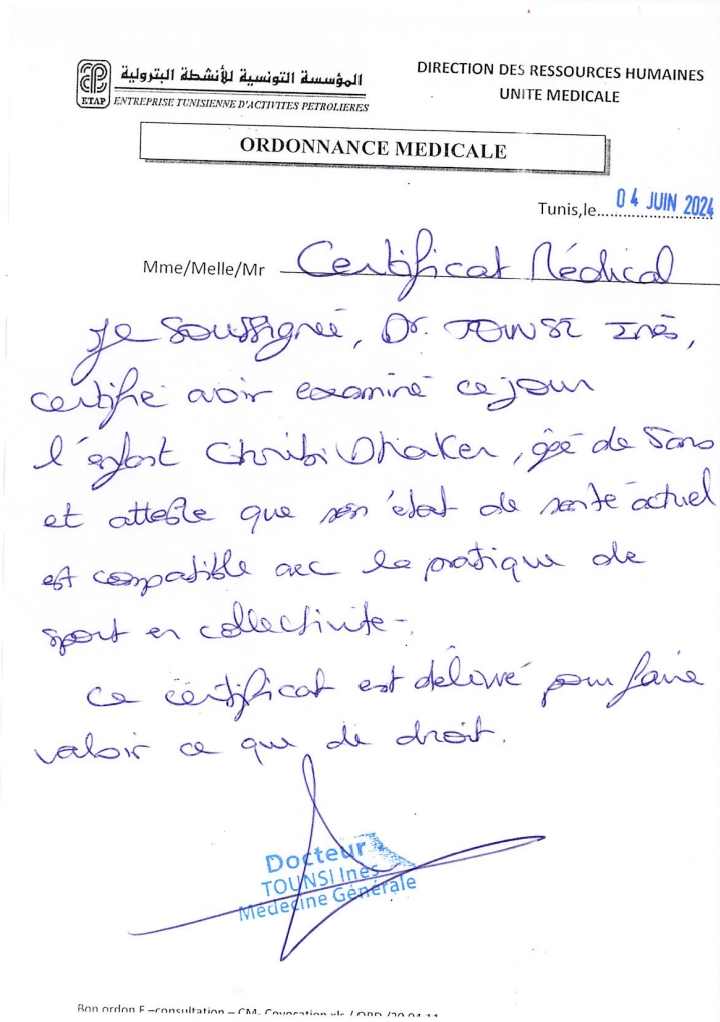 المؤسسة التونسية للأنشطة البترولية
ETAP ENTREPRISE TUNISIENNE D'ACTIVITES PETROLIERES
DIRECTION DES RESSOURCES HUMAINES
UNITE MEDICALE
ORDONNANCE MEDICALE
Tunis,le.....04 JUIN 2024
Mme/Melle/Mr Certificat Médical
Je soussignée, Dr. TOUNSI Inès,
certifie avoir examiné ce jour
l'enfant Chribi Dhaker, âgé de 5 ans
et atteste que son état de santé actuel
est compatible avec la pratique de
sport en collectivité.
Ce certificat est délivré pour faire
valoir ce que de droit.
Docteur
TOUNSI Ines
Médecine Générale
Bon ordon F –consultation – CM-